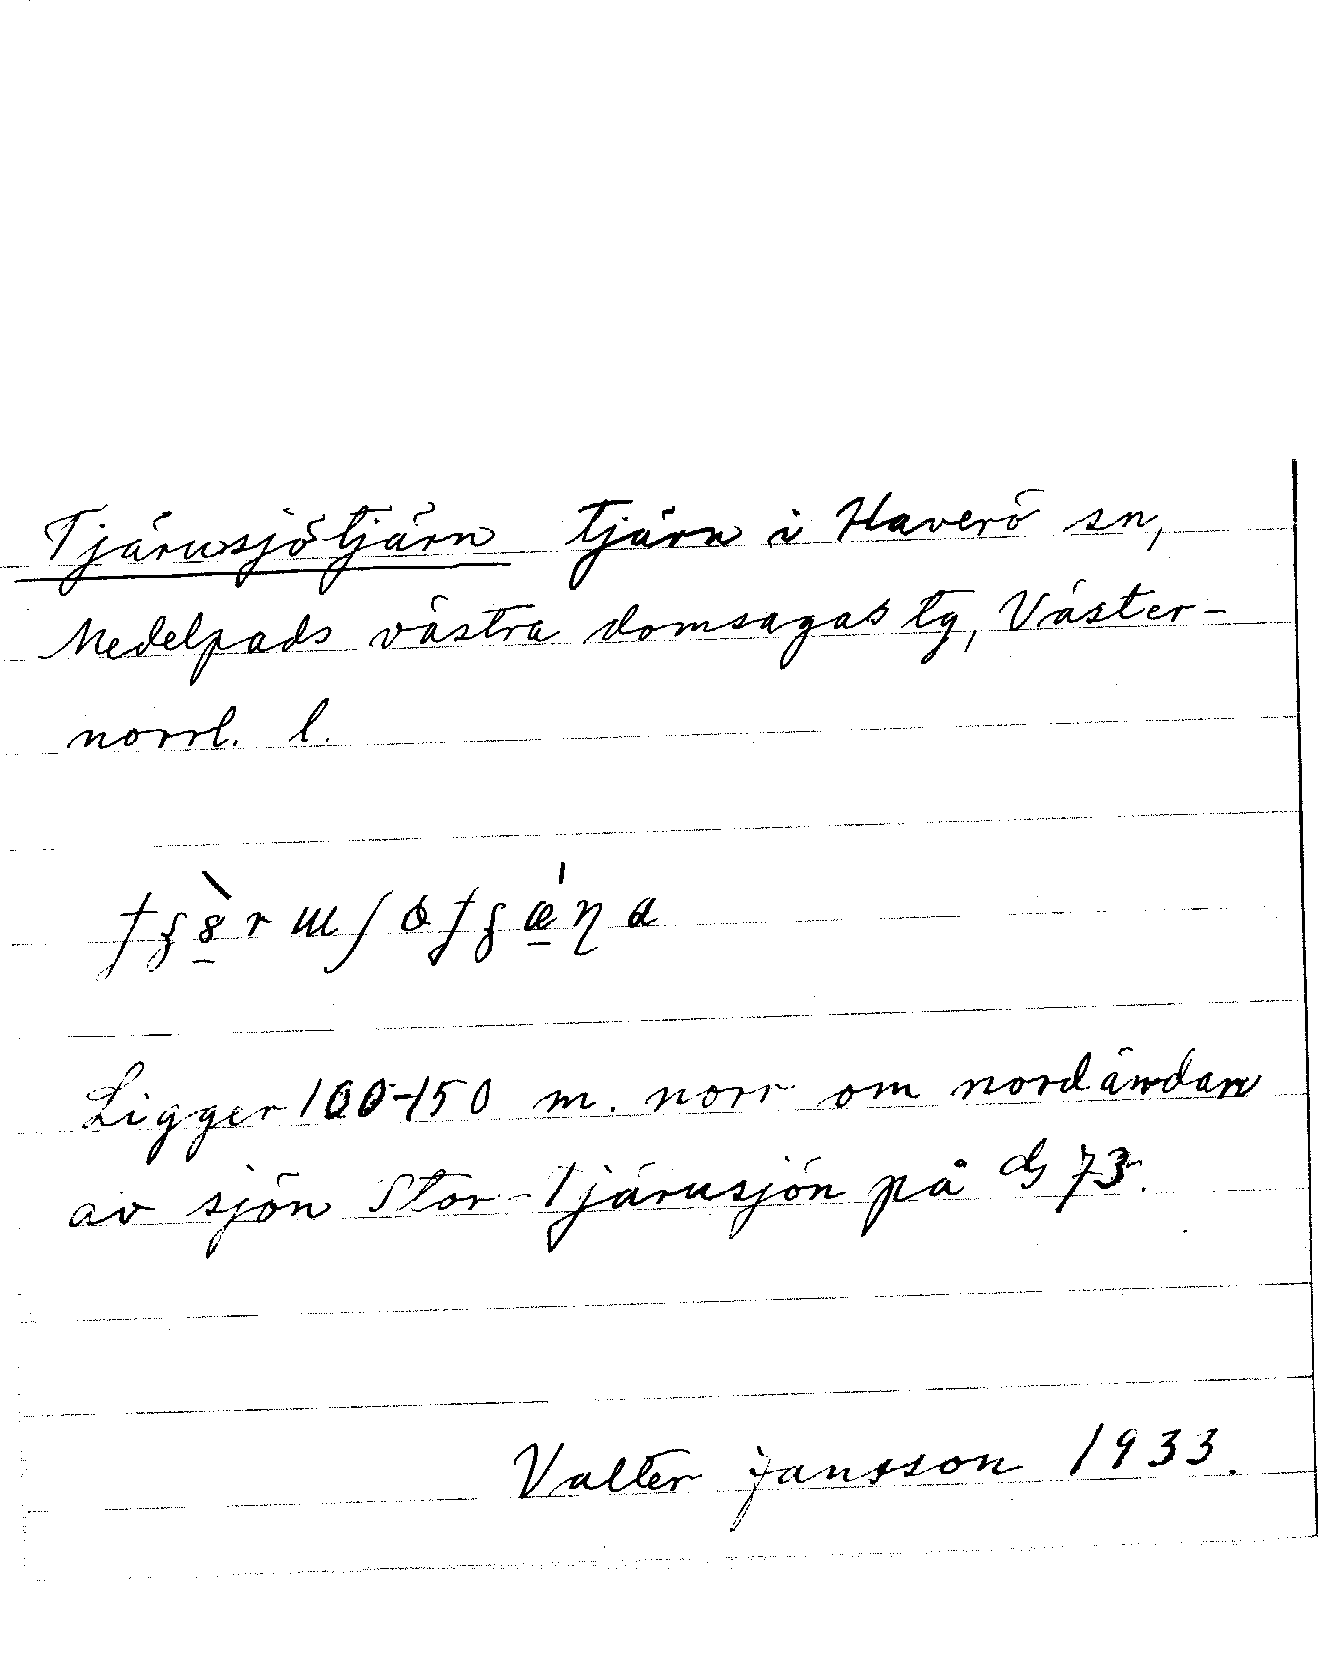 Tjärusjötjärn tjärn i Haverö sn,
Medelpads västra domsagas tg, Väster-
norrl. l.
Ligger 100-150 m. norr om nordändan
av sjön Stor-Tjärusjön på G 73.
Valter Jansson 1933.